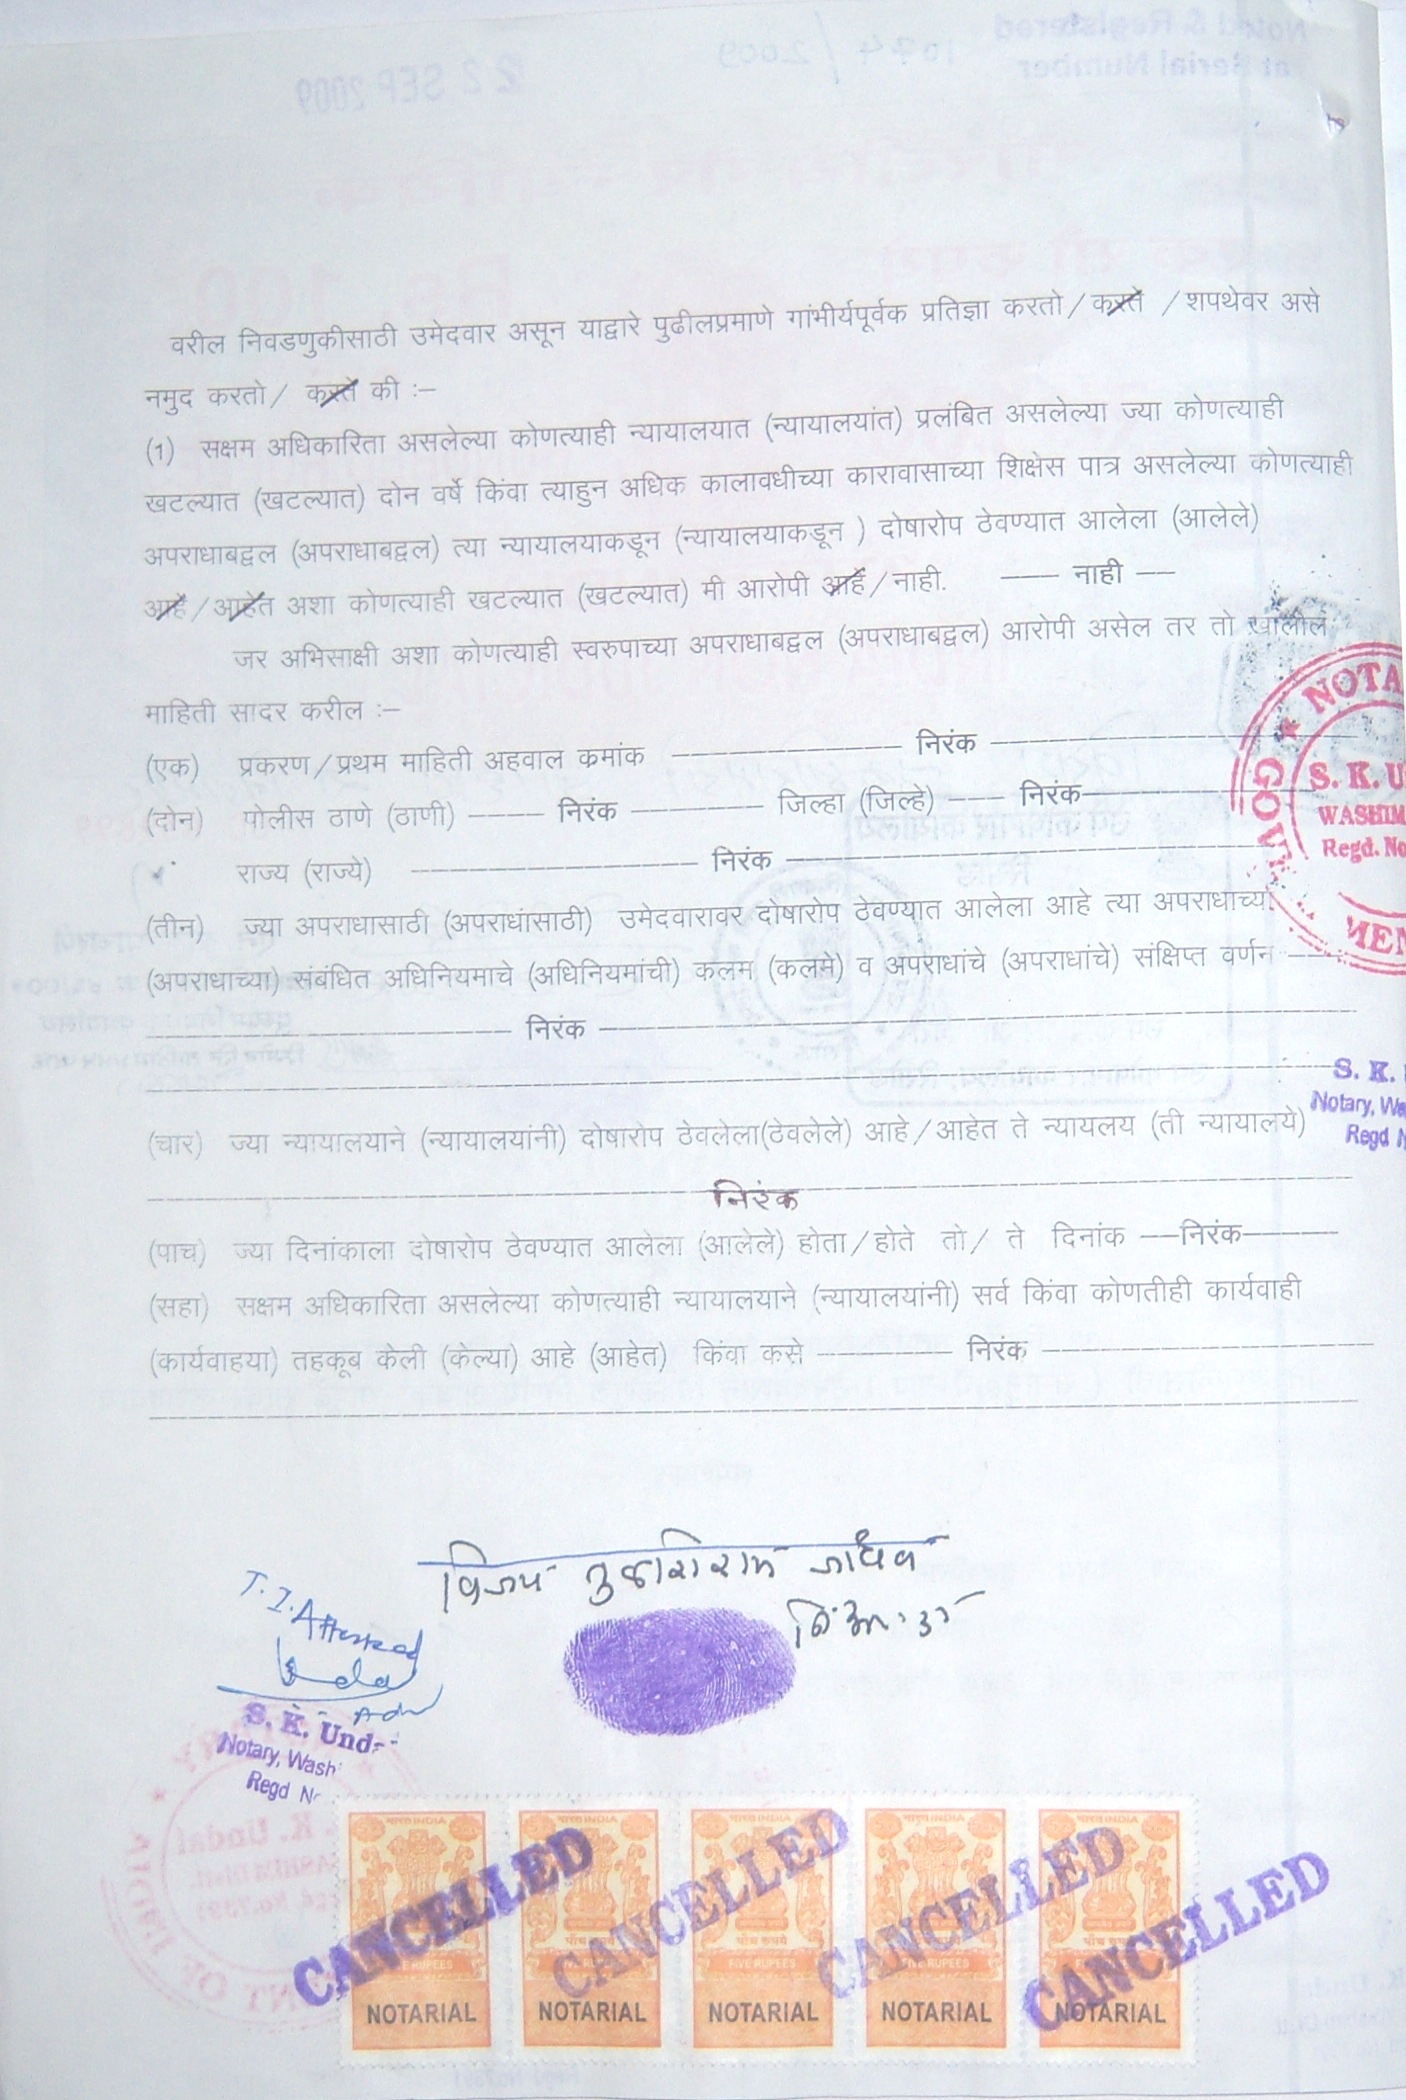 वरील निवडणुकीसाठी उमेदवार असून याद्वारे पुढीलप्रमाणे गांभीर्यपूर्वक प्रतिज्ञा करतो / करते / शपथेवर असे
नमुद करतो / करते की :–
(1) सक्षम अधिकारिता असलेल्या कोणत्याही न्यायालयात (न्यायालयांत) प्रलंबित असलेल्या ज्या कोणत्याही
खटल्यात (खटल्यात) दोन वर्षे किंवा त्याहुन अधिक कालावधीच्या कारावासाच्या शिक्षेस पात्र असलेल्या कोणत्याही
अपराधाबद्वल (अपराधाबद्वल) त्या न्यायालयाकडून (न्यायालयाकडून ) दोषारोप ठेवण्यात आलेला (आलेले)
आहे / आहेत अशा कोणत्याही खटल्यात (खटल्यात) मी आरोपी आहे / नाही. —— नाही ——
जर अभिसाक्षी अशा कोणत्याही स्वरुपाच्या अपराधाबद्वल (अपराधाबद्वल) आरोपी असेल तर तो खालील
माहिती सादर करील :–
(एक) प्रकरण / प्रथम माहिती अहवाल कमांक ———— निरंक ————
(दोन) पोलीस ठाणे (ठाणी) ——— निरंक ——— जिल्हा (जिल्हे) ——— निरंक ———
राज्य (राज्ये) ———— निरंक ————
(तीन) ज्या अपराधासाठी (अपराधांसाठी) उमेदवारावर दोषारोप ठेवण्यात आलेला आहे त्या अपराधाच्या
(अपराधाच्या) संबंधित अधिनियमाचे (अधिनियमांची) कलम (कलमे) व अपराधांचे (अपराधांचे) संक्षिप्त वर्णन ——
———— निरंक ————
(चार) ज्या न्यायालयाने (न्यायालयांनी) दोषारोप ठेवलेला(ठेवलेले) आहे / आहेत ते न्यायलय (ती न्यायालये)
———— निरंक ————
(पाच) ज्या दिनांकाला दोषारोप ठेवण्यात आलेला (आलेले) होता / होते तो / ते दिनांक —निरंक———
(सहा) सक्षम अधिकारिता असलेल्या कोणत्याही न्यायालयाने (न्यायालयांनी) सर्व किंवा कोणतीही कार्यवाही
(कार्यवाहया) तहकूब केली (केल्या) आहे (आहेत) किंवा कसे ———— निरंक ————
NOTA
GOVT.
S. K. U
WASHIM
Regd. No
MEN
S. K.
Notary, Wa
Regd N
विजय तुळशिराम जाधव
T. I. Attested
Adv
S. K. Und
Notary, Wash
Regd N
भारत INDIA भारत INDIA भारत INDIA भारत INDIA भारत INDIA
पाँच रुपये पाँच रुपये पाँच रुपये पाँच रुपये पाँच रुपये
FIVE RUPEES FIVE RUPEES FIVE RUPEES FIVE RUPEES FIVE RUPEES
NOTARIAL NOTARIAL NOTARIAL NOTARIAL NOTARIAL
CANCELLED CANCELLED CANCELLED CANCELLED